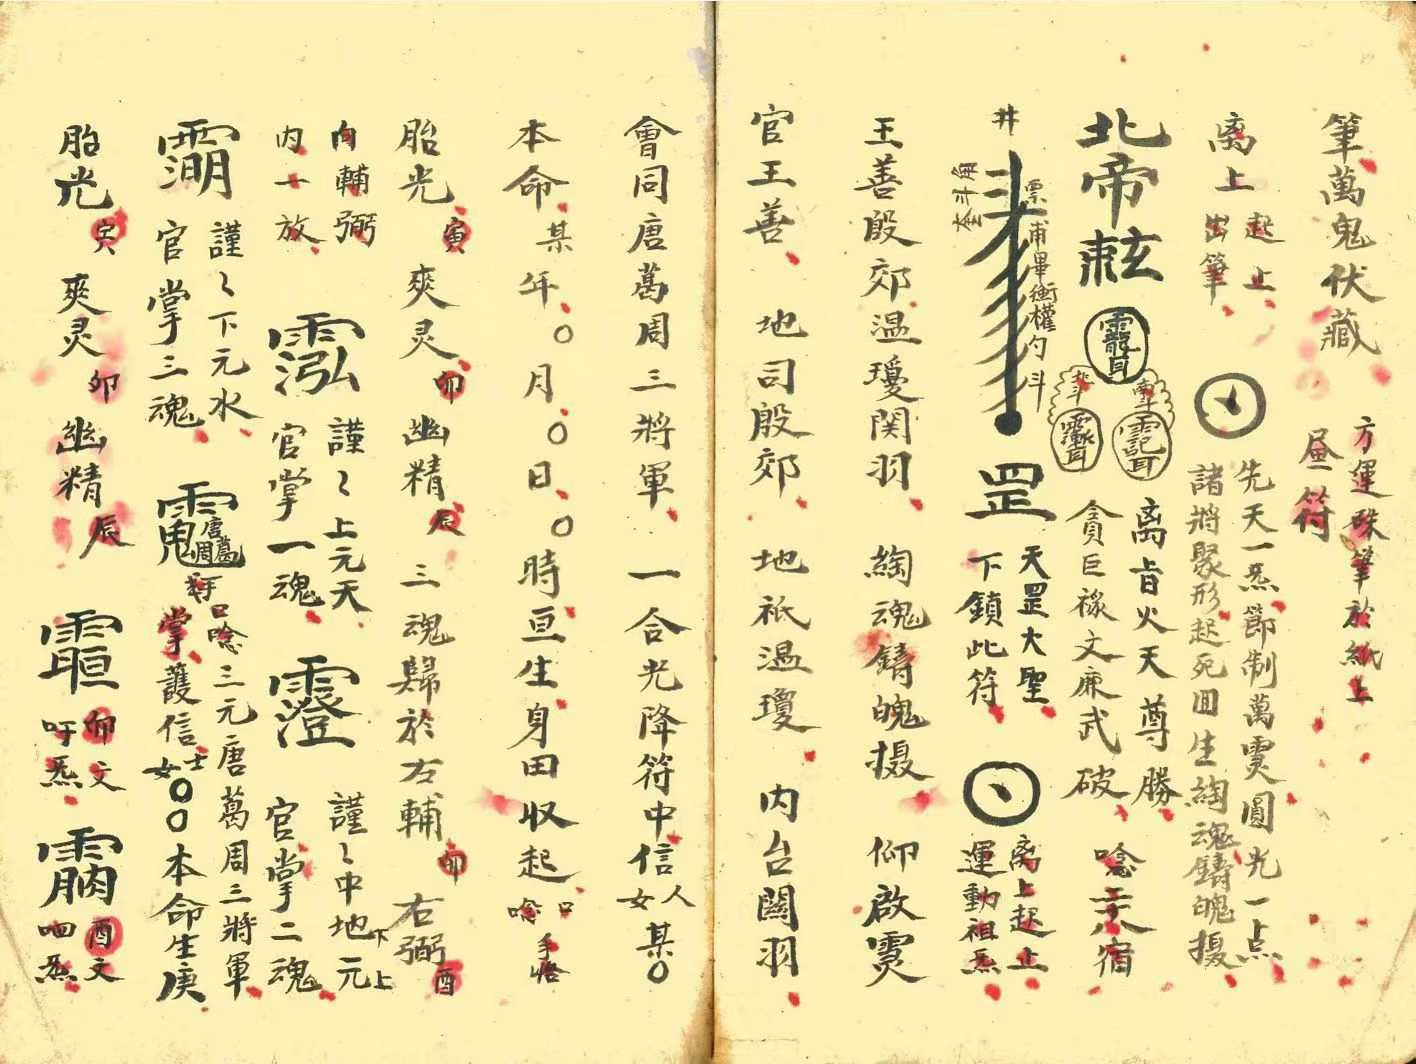 筆萬鬼伏藏
方運硃筆於紙上
昼符
离上
起止
出筆
先天一炁節制萬霊圓光一点
諸將聚形起死回生綯魂鑄魄摄
北帝
离旨火天尊勝
貪巨祿文廉武破
唸
宿
南斗
北斗
井
角斗奎
票甫畢衡權勺斗
罡
天罡大聖
下鎖此符
离上起止
運動祖炁
王善殷郊温瓊関羽
綯魂鑄魄摄
仰啟霊
官王善
地司殷郊
地祇温瓊
内台関羽
會同唐葛周三將軍
一合光降符中信
人
女
某〇
本命某年〇月〇日〇時亘生身田収起
口
唸
手
胎光寅爽灵卯幽精辰
三魂歸於左輔卯右弼酉
内輔弼
内一放
謹〻上元天
官掌一魂
謹〻中地元
下上
官掌二魂
謹〻下元水
官掌三魂
唐葛周
口唸三元唐葛周三將軍
掌護信士
女
〇〇本命生庚
胎光寅爽灵卯幽精辰
卯文
吁炁
酉文
呬炁